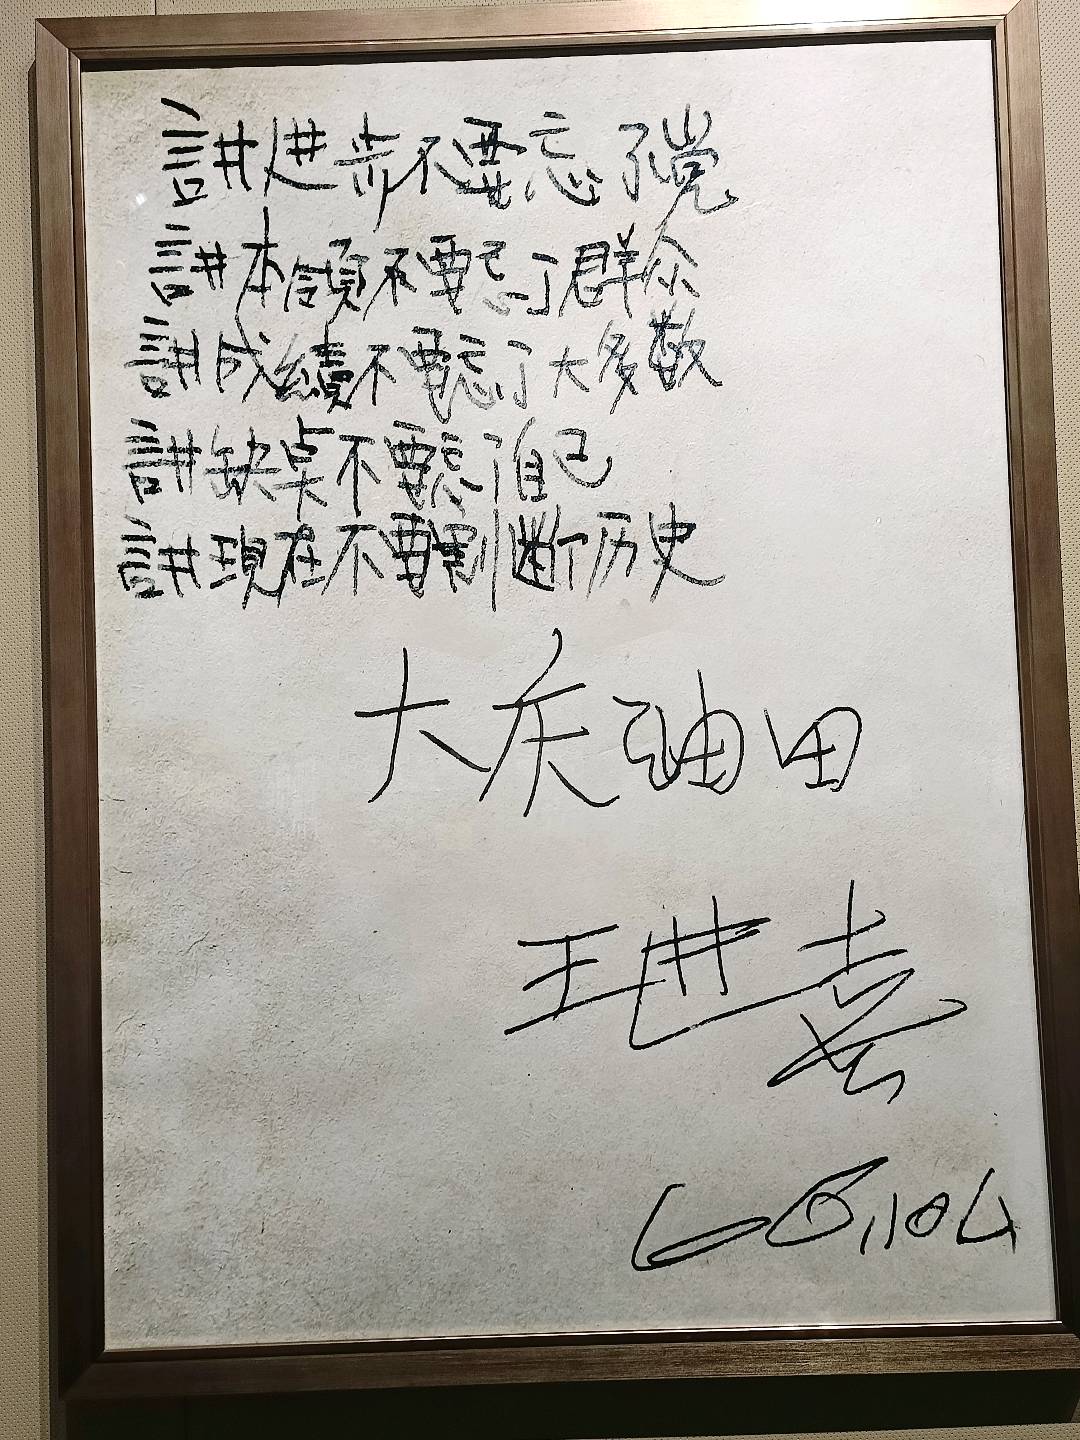 講进步不要忘了党
講本領不要忘了群众
講成績不要忘了大多数
講缺点不要忘了自己
講現在不要割断历史
大庆油田
王进喜
66,104